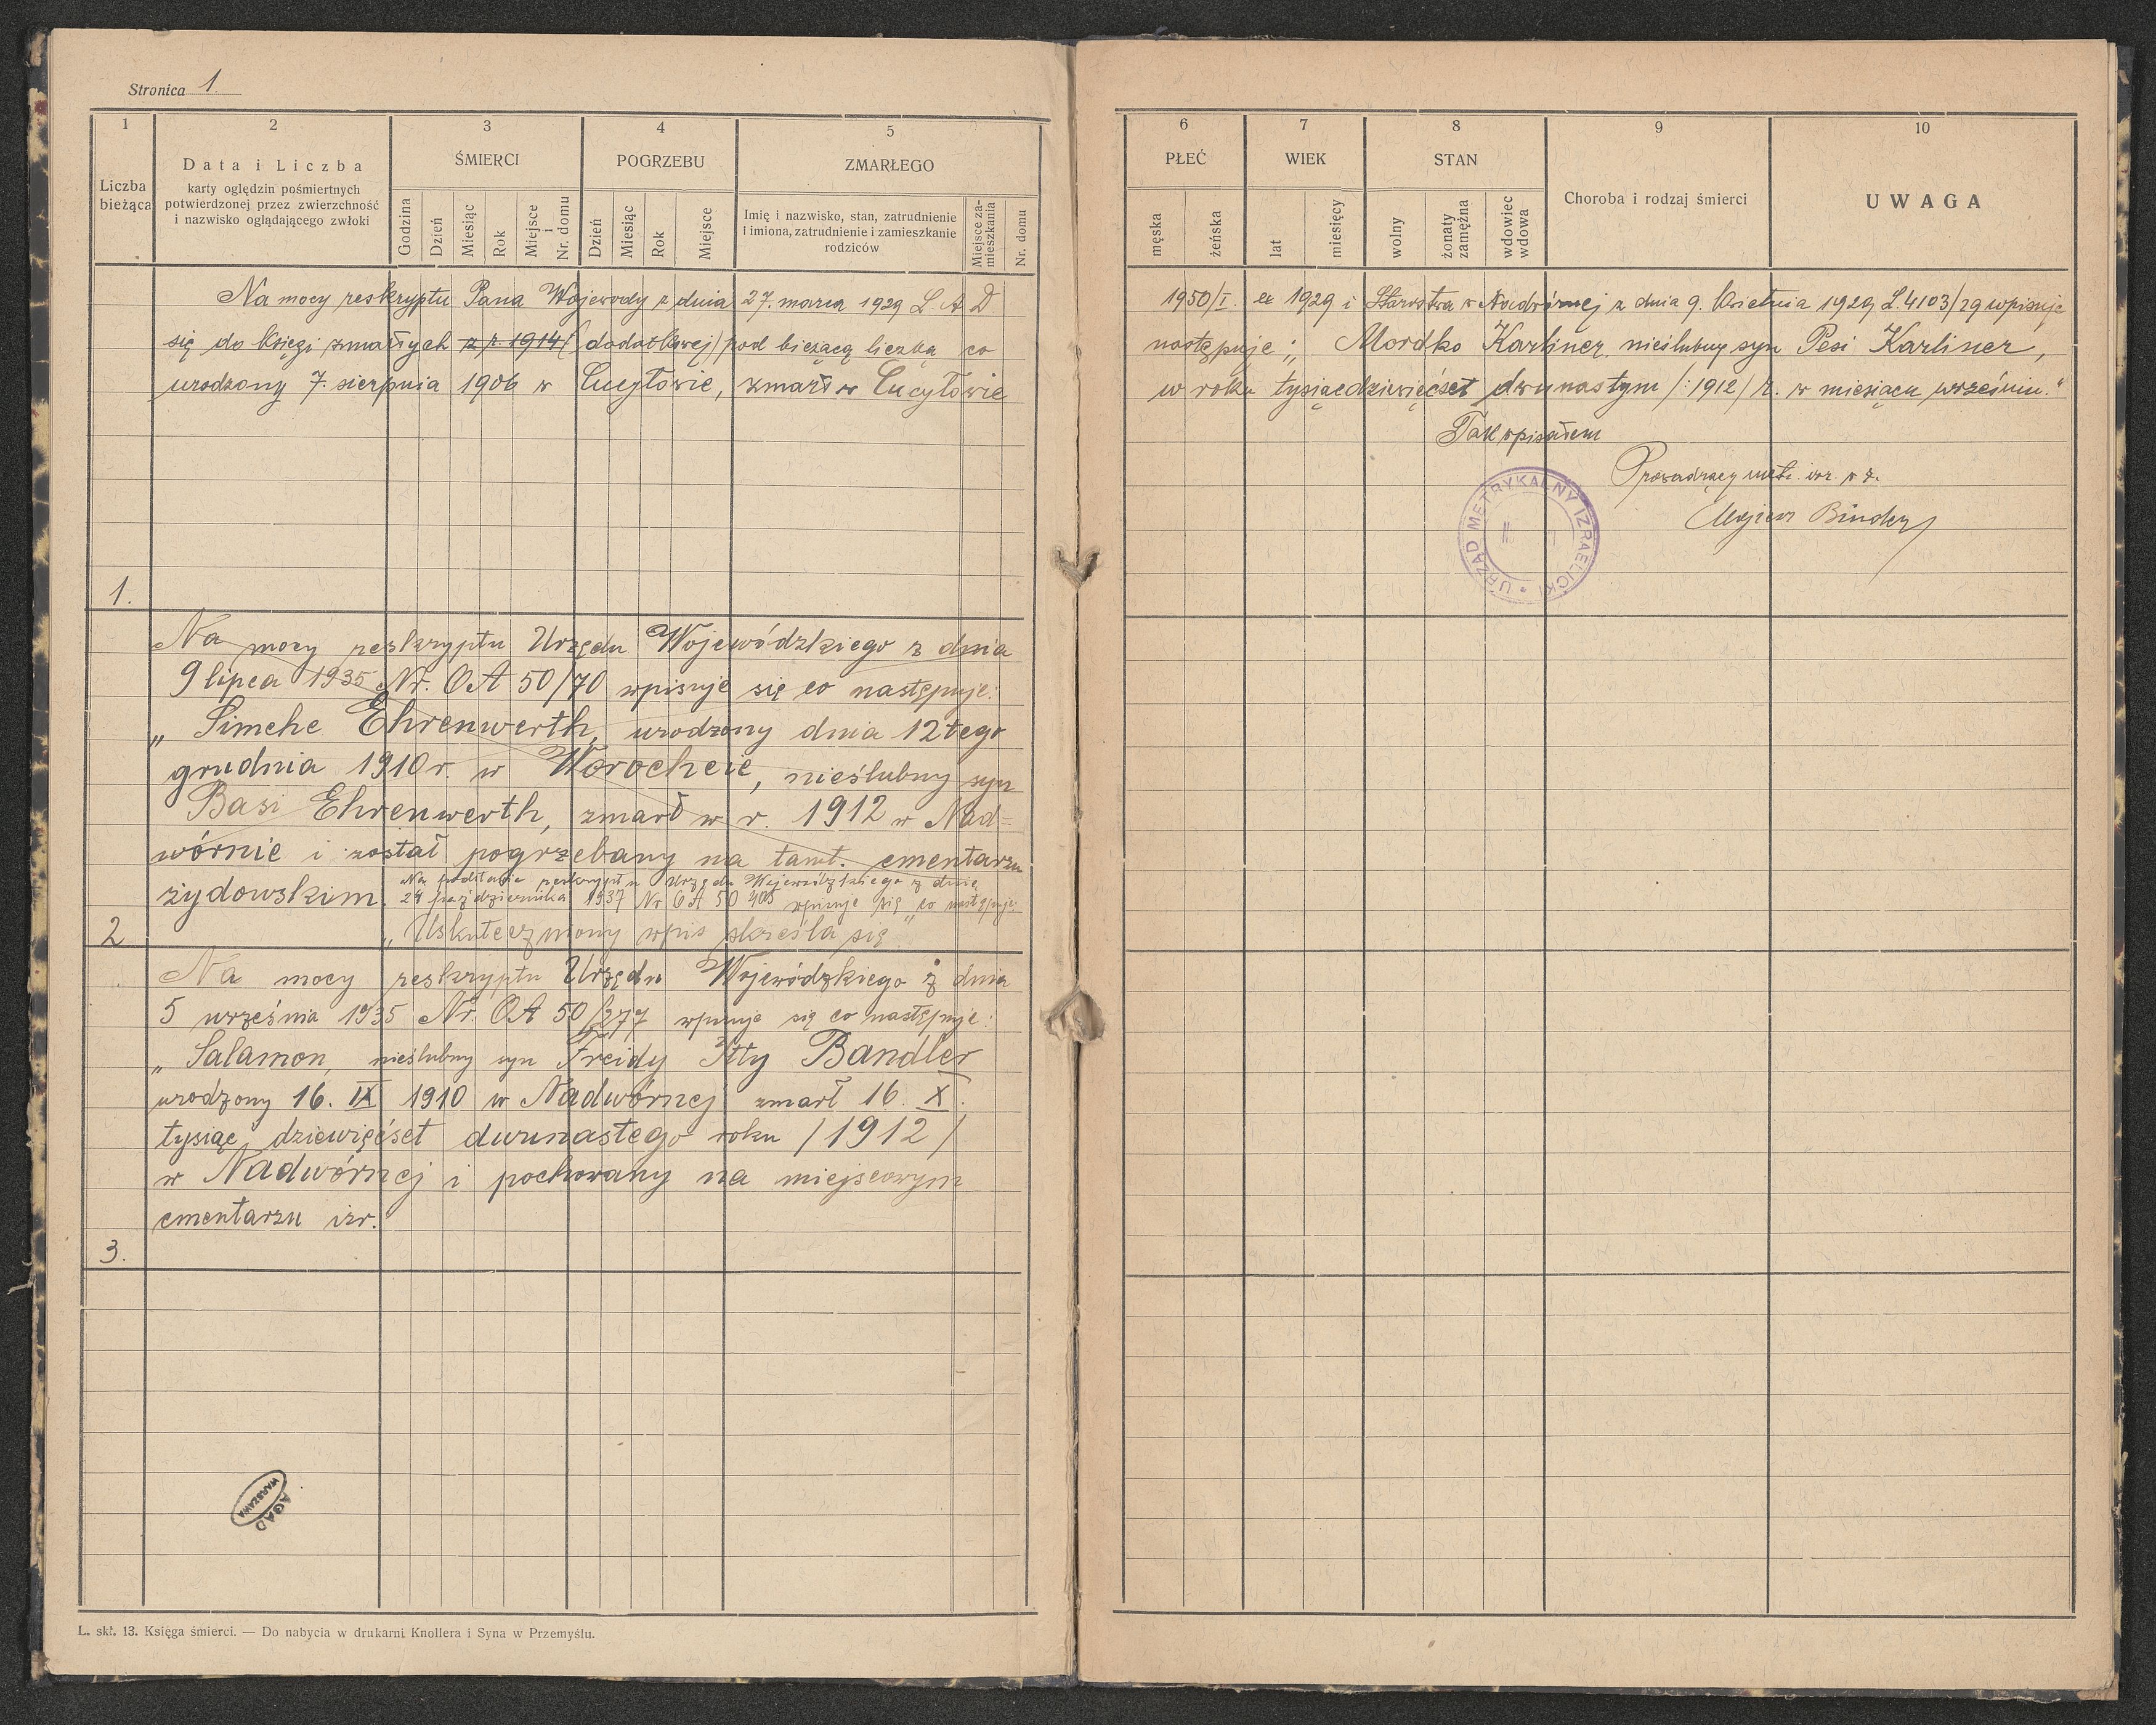 Stronica 1.
1
2
3
4
5
Liczba bieżąca
Data i Liczba
karty oględzin pośmiertnych
potwierdzonej przez zwierzchność
i nazwisko oglądającego zwłoki
ŚMIERCI
Godzina
Dzień
Miesiąc
Rok
Miejsce i Nr. domu
POGRZEBU
Dzień
Miesiąc
Rok
Miejsce
ZMARŁEGO
Imię i nazwisko, stan, zatrudnienie
i imiona, zatrudnienie i zamieszkanie
rodziców
Miejsce zamieszkania
Nr. domu
6
7
8
9
10
PŁEĆ
męska
żeńska
WIEK
lat
miesięcy
STAN
wolny
żonaty zamężna
wdowiec wdowa
Choroba i rodzaj śmierci
UWAGA
Na mocy reskryptu Pana Wojewody z dnia 27. marca 1929 L. A D 1950/I. ex 1929 i Starostwa w Nadwórnej z dnia 9. kwietnia 1929 L. 4103/29 wpisuje
się do księgi zmarłych z r. 1914 (dodatkowej) pod bieżącą liczbą co następuje: „Mordko Karliner nieślubny syn Pesi Karliner,
urodzony 7. sierpnia 1906 w Cucyłowie, zmarł w Cucyłowie w roku tysiącdziewięćset dwunastym /:1912/ r. w miesiącu wrześniu."
Tak wpisałem
Prowadzący metr. izr. w z.
Binder
URZĄD METRYKALNY IZRAELICKI
1.
Na mocy reskryptu Urzędu Wojewódzkiego z dnia
9 lipca 1935 Nr. OA 50/70 wpisuje się co następuje:
„Simche Ehrenwerth, urodzony dnia 12tego
grudnia 1910 r. w Worochcie, nieślubny syn
Basi Ehrenwerth, zmarł w r. 1912 w Nad=
wórnie i został pogrzebany na tamt. cmentarzu
żydowskim.
Na podstawie reskryptu Urzędu Wojewódzkiego z dnia
29 października 1937 Nr OA 50 wpisuje się co następuje:
„Uskuteczniony wpis skreśla się"
2
Na mocy reskryptu Urzędu Wojewódzkiego z dnia
5 września 1935 Nr. OA 50/277 wpisuje się co następuje:
„Salamon, nieślubny syn Freidy Itty Bandler
urodzony 16. IX 1910 w Nadwórnej zmarł 16. X.
tysiąc dziewięćset dwunastego roku /1912/
w Nadwórnej i pochowany na miejscowym
cmentarzu izr.
3.
AGAD
WARSZAWA
L. skł. 13. Księga śmierci. — Do nabycia w drukarni Knollera i Syna w Przemyślu.